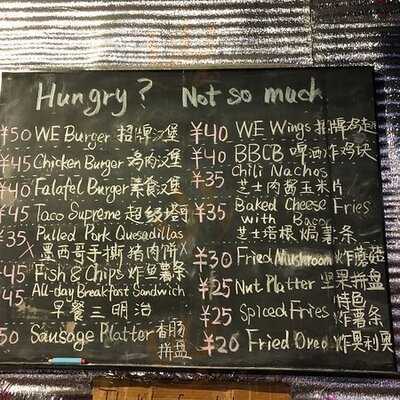 Hungry? Not so much
¥50 WE Burger 招牌汉堡
¥45 Chicken Burger 鸡肉汉堡
¥40 Falafel Burger 素食汉堡
¥45 Taco Supreme 超级塔可
¥35 Pulled Pork Quesadillas
墨西哥手撕猪肉饼
¥45 Fish & Chips 炸鱼薯条
45 All-day Breakfast Sandwich
早餐三明治
50 Sausage Platter 香肠
拼盘
¥40 WE Wings 招牌鸡翅
¥40 BBCB 啤酒炸鸡块
¥35 Chili Nachos
芝士肉酱玉米片
¥35 Baked Cheese Fries
with Bacon
芝士培根焗薯条
¥30 Fried Mushroom 炸蘑菇
¥25 Nut Platter 坚果拼盘
¥25 Spiced Fries 特色
炸薯条
¥20 Fried Oreo 炸奥利奥